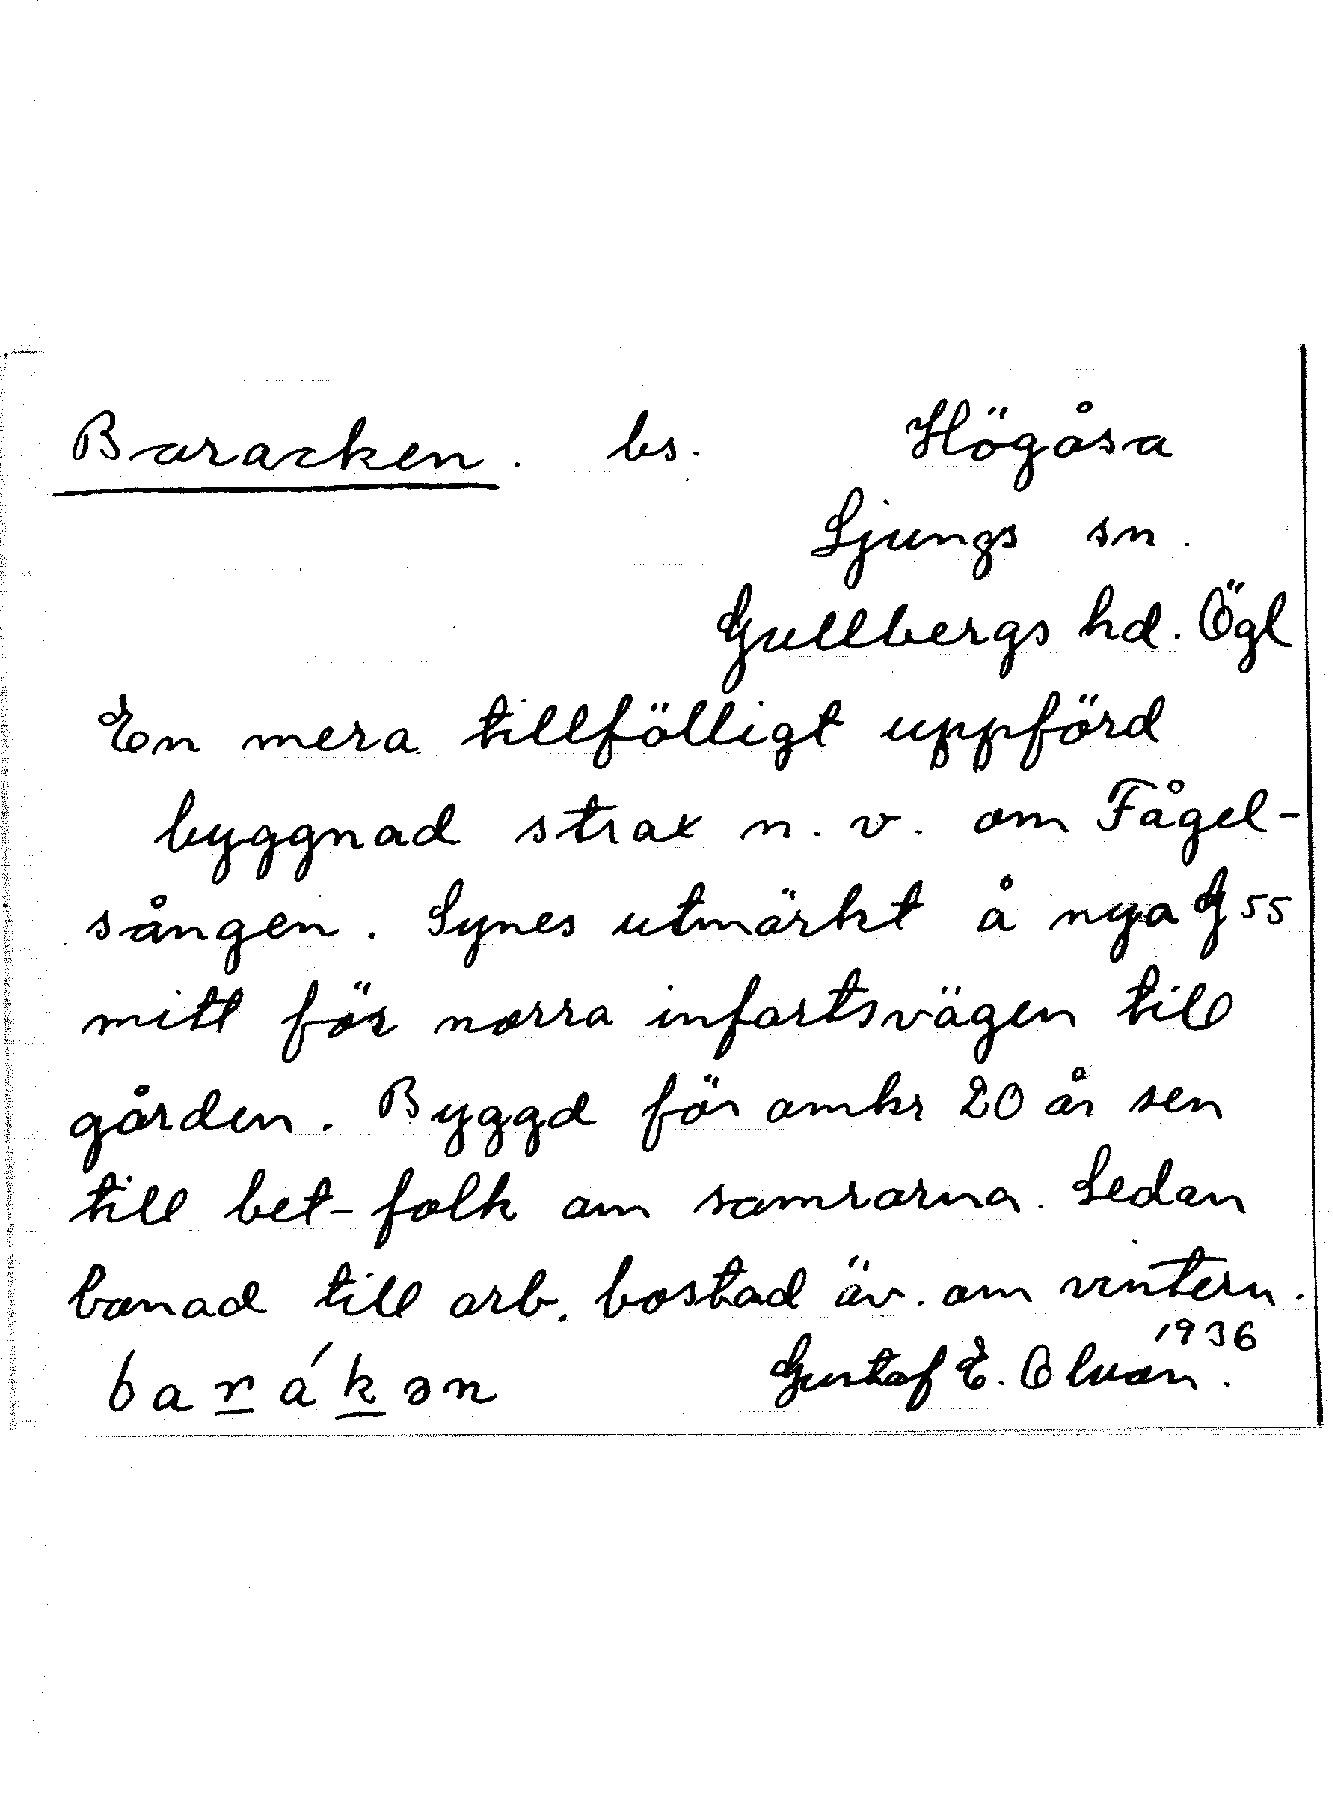 Baracken. bs. Högåsa
Ljungs sn.
Gullbergs hd. Ögl
En mera tillfälligt uppförd
byggnad strax n. v. om Fågel-
sången. Synes utmärkt å nya G 55
mitt för norra infartsvägen till
gården. Byggd för omkr 20 år sen
till bet-folk om somrarna. Sedan
bonad till arb. bostad äv. om vintern.
1936
barákən Gustaf E.